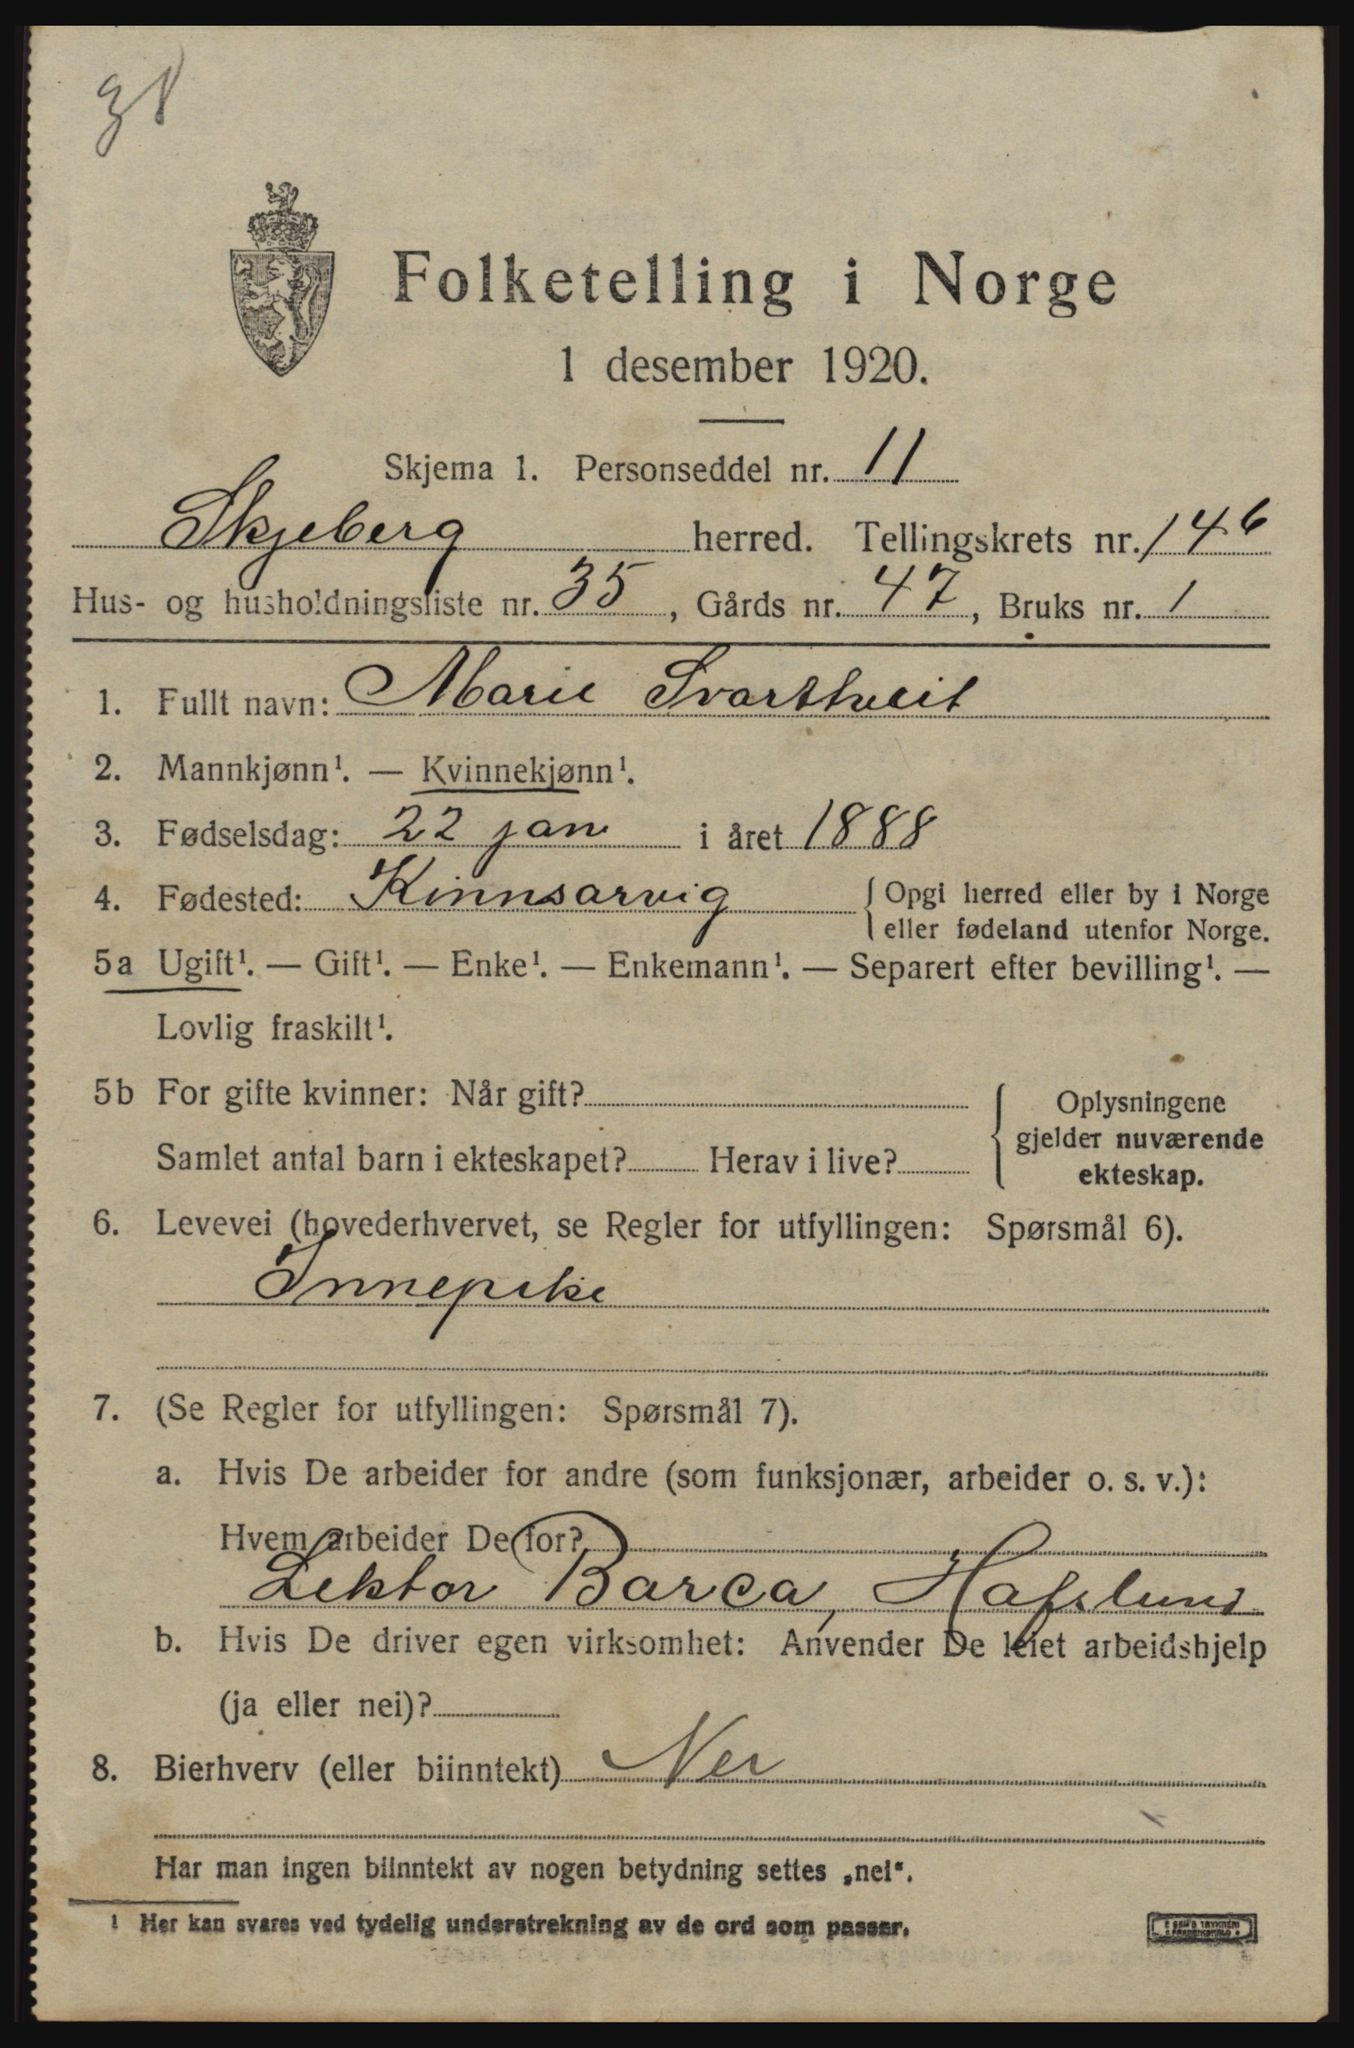 38
Folketelling i Norge
1 desember 1920.
Skjema 1. Personseddel nr. 11
Skjeberg herred. Tellingskrets nr. 14 6
Hus- og husholdningsliste nr. 35, Gårds nr. 47, Bruks nr. 1
1. Fullt navn: Marie Svartveit
2. Mannkjønn¹. — Kvinnekjønn¹.
3. Fødselsdag: 22 jan i året 1888
4. Fødested: Kinnsarvig { Opgi herred eller by i Norge
eller fødeland utenfor Norge.
5a Ugift¹. — Gift¹. — Enke¹. — Enkemann¹. — Separert efter bevilling¹. —
Lovlig fraskilt¹.
5b For gifte kvinner: Når gift? { Oplysningene
gjelder nuværende
Samlet antal barn i ekteskapet? Herav i live?
ekteskap.
6. Levevei (hovederhvervet, se Regler for utfyllingen: Spørsmål 6).
Innepike
7. (Se Regler for utfyllingen: Spørsmål 7).
a. Hvis De arbeider for andre (som funksjonær, arbeider o. s. v.):
Hvem arbeider De for?
Lektor Barca, Hafslund
b. Hvis De driver egen virksomhet: Anvender De leiet arbeidshjelp
(ja eller nei)?
8. Bierhverv (eller biinntekt) Nei
Har man ingen biinntekt av nogen betydning settes „nei“.
1 Her kan svares ved tydelig understrekning av de ord som passer.